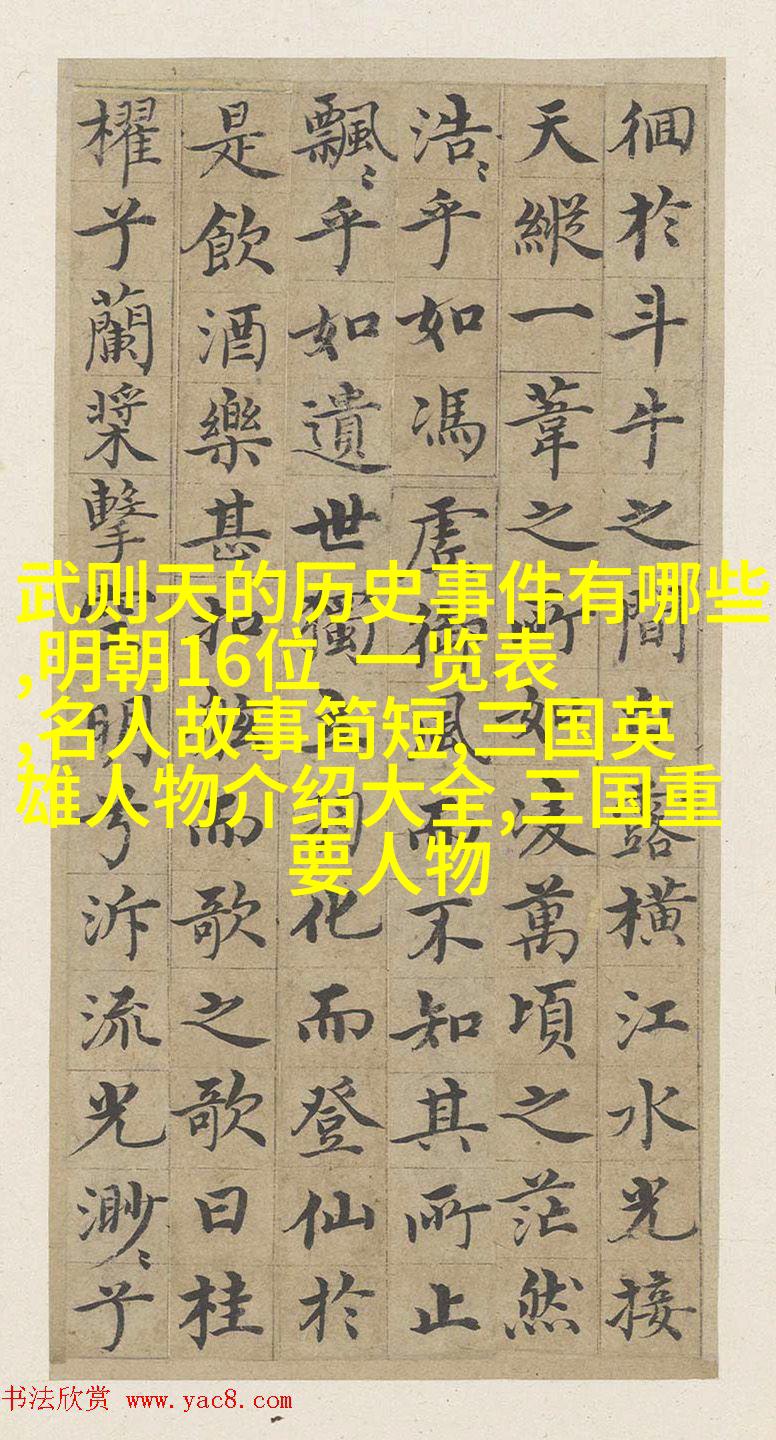 徊於斗牛之間白露橫江水光接
天縱一葦之所如凌萬頃之茫然
浩〻乎如馮虛御風而不知其所止
飄〻乎如遺世獨立羽化而登仙於
是飲酒樂甚扣舷而歌之歌曰桂
櫂兮蘭槳擊空明兮泝流光渺〻兮
武则天的历史事件有哪些
,明朝16位 一览表
,名人故事简短,三国英
雄人物介绍大全,三国重
要人物
书法欣赏 www.yac8.com